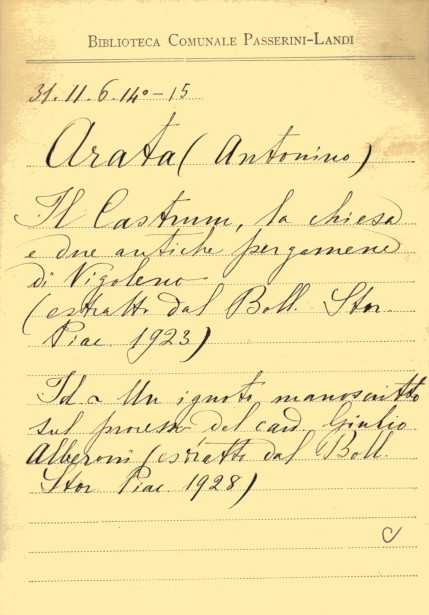 BIBLIOTECA COMUNALE PASSERINI-LANDI
31.11.6.14°-15
Arata (Antonino)
Il Castrum, la chiesa
e due antiche pergamene
di Vigoleno
(estratto dal Boll. Stor.
Piac 1923)
Id - Un ignoto manoscritto
sul processo del card Giulio
Alberoni (estratto dal Boll.
Stor Piac 1928)